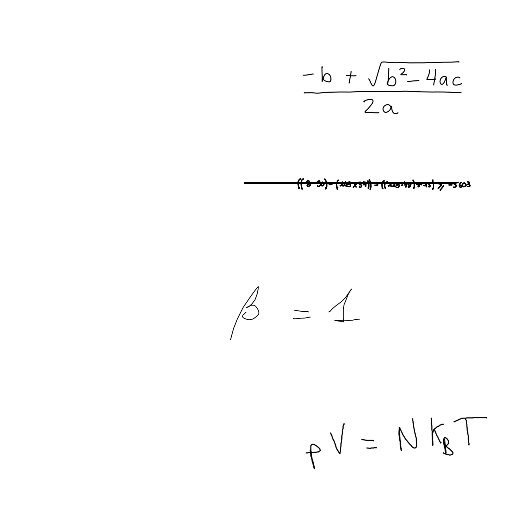 \frac{-b + \sqrt{b^2 - 4ac}}{2a}
\beta = 1
pV = NK_BT